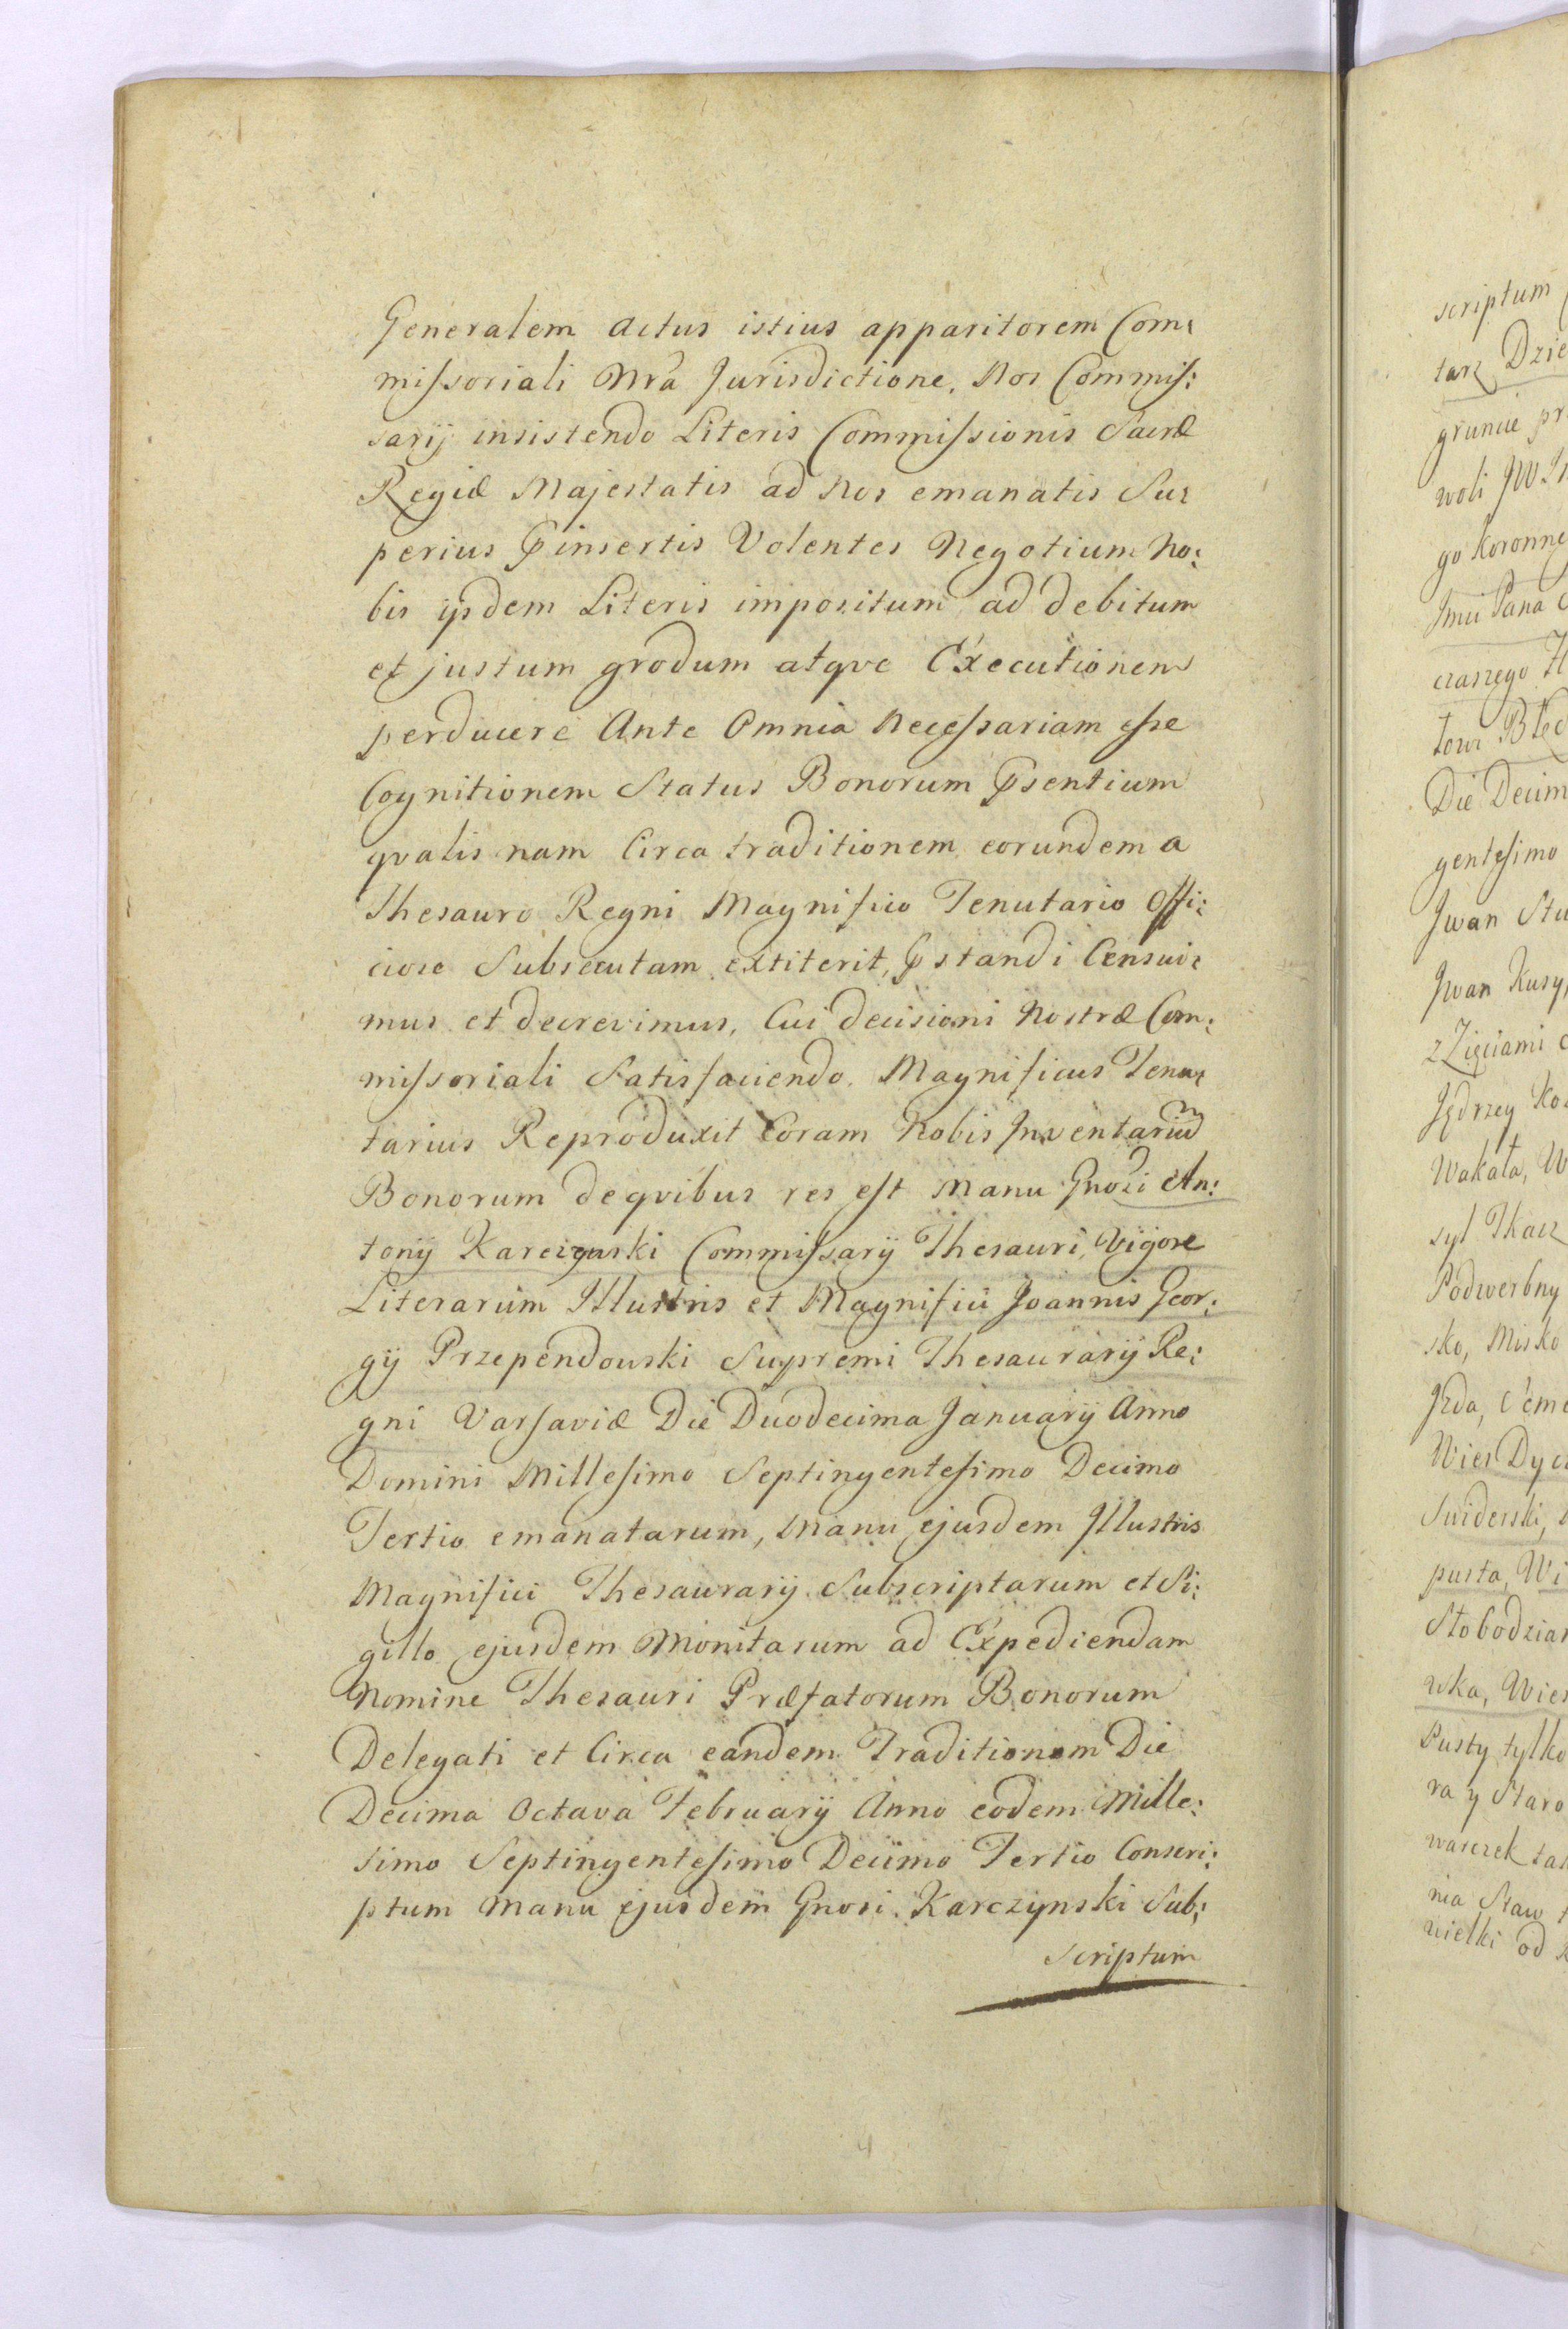 Generalem actus istius apparitorem Com:
missoriali Nrâ Jurisdictione. Nos Commis:
sarij insistendo Literis Commissionis Sacræ
Regiæ Majestatis ad nos emanatis Su:
perius insertis Volentes Negotium No:
bis ijsdem Literis impositum ad debitum
et justum grodum atqve Executionem
perducere Ante Omnia Necessariam esse
Cognitionem Status Bonorum Psentium
qvalis nam Circa traditionem eorundem a
Thesauro Regni Magnifico Tenutario Offi:
ciose Subsecutam extiterit, Pstandi Censui:
mus et decrevimus, Cui decisioni Nostræ Com:
missoriali Satisfaciendo. Magnificus Tenu:
tarius Reproduxit Coram Nobis Inventariū
Bonorum deqvibus res est Manu Gnosi An:
tonij Karczynski Commissarij Thesauri, Vigore
Literarum Illustris et Magnifici Joannis Geor:
gij Przependowski Supremi Thesaurarij Re:
gni Varsaviæ Die Duodecima Januarij Anno
Domini Millesimo Septingentesimo Decimo
Tertio emanatarum, Manu ejusdem Illustris
Magnifici Thesaurarij Subscriptarum et Si:
gillo ejusdem Monitarum ad Expediendam
Nomine Thesauri Præfatorum Bonorum
Delegati et Circa eandem Traditionem Die
Decima Octava Februarij Anno eodem Mille:
simo Septingentesimo Decimo Tertio Conscri:
ptum Manu ejusdem Gnosi. Karczynski Sub:
scriptum
4
scriptum
tarz Dzie
gruncie pr
woli JW.
go Koronne
Jmci Pana
czaszego
towi Błęd
Die Decim
gentesimo
Jwan Stu
Jwan Kusy,
z Zięciami
Jędrzey Ko
Wakała, W
syl Tkacz
Podwerbny
sko, Misko
Jzda,
Wies Dy
Swiderski,
pusta, Wi
Słobodzia
wka, Wies
Pusty tylko
ra y Staro
warczek ta
nia Staw
wielki od